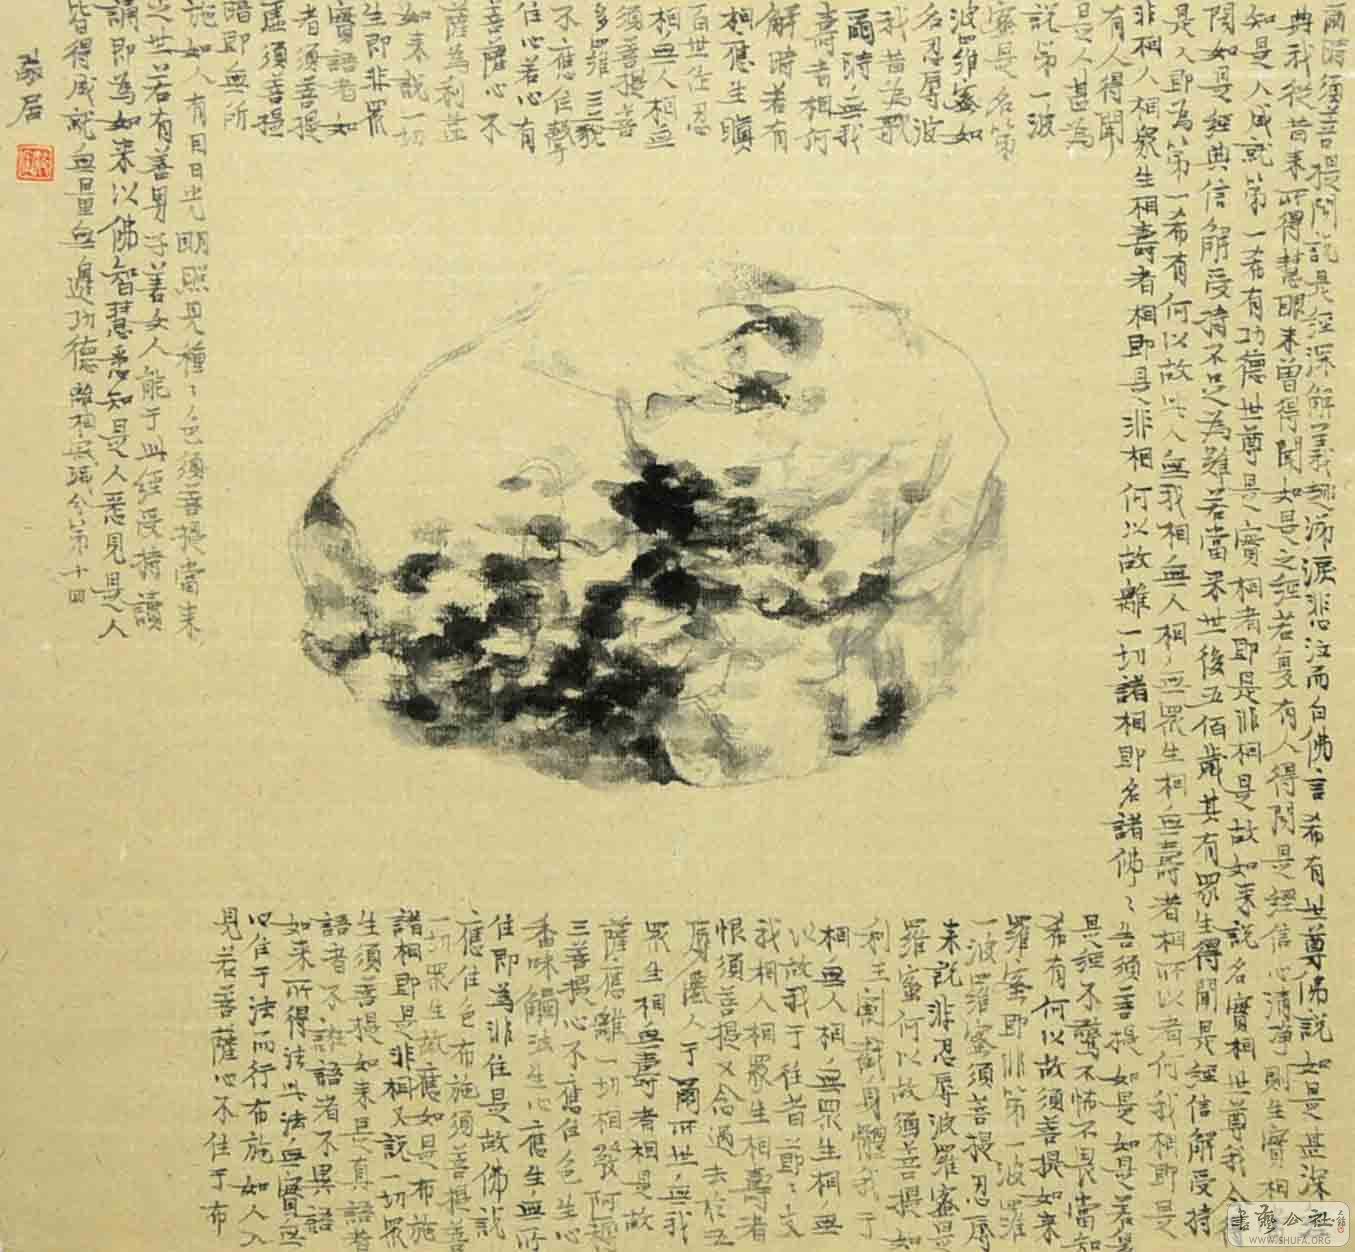 爾時須菩提聞說是經深解義趣涕淚悲泣而白佛言希有世尊佛說如是甚深經
典我從昔來所得慧眼未曾得聞如是之經若复有人得聞是經信心清淨則生實相
知是人成就第一希有功德世尊是實相者即是非相是故如來說名實相世尊我今
聞如是經典信解受持不足為難若當來世後五佰歲其有眾生得聞是經信解受持
是人即為第一希有何以故此人無我相無人相無眾生相無壽者相所以者何我相即是
非相人相眾生相壽者相即是非相何以故離一切諸相即名諸佛〻告須菩提如是如是若
有人得聞
是經不驚不怖不畏當知
是人甚為
希有何以故須菩提如來
說第一波
羅蜜即非第一波羅
蜜是名第
一波羅蜜須菩提忍辱
波羅蜜如
來說非忍辱波羅蜜是
名忍辱波
羅蜜何以故須菩提如
我昔為歌
利王割截身體我于
爾時無我
相無人相無眾生相無
壽者相何
以故我于往昔節〻支
解時若有
我相人相眾生相壽者
相應生瞋
恨須菩提又念過去於五
百世作忍
辱僊人于爾所世無我
相無人相無
眾生相無壽者相是故
須菩提菩
薩應離一切相發阿耨
多羅三藐
三菩提心不應住色生心
不應住聲
香味觸法生心應生無所
住心若心有
住即為非住是故佛說
菩薩心不
應住色布施須菩提菩
薩為利益
一切眾生故應如是布施
如來說一切
諸相即是非相又說一切眾
生即非眾
生須菩提如來是真語者
實語者如
語者不誑語者不異語
者須菩提
如來所得法此法無實無
虛須菩提
心住于法而行布施如人入
暗即無所
見若菩薩心不住于布
施如人有目日光明照見種〻色須菩提當來
之世若有善男子善女人能于此經受持讀
誦即為如來以佛智慧悉知是人悉見是人
皆得成就無量無邊功德 離相寂滅分第十四
書藝公社
WWW.SHUFA.ORG